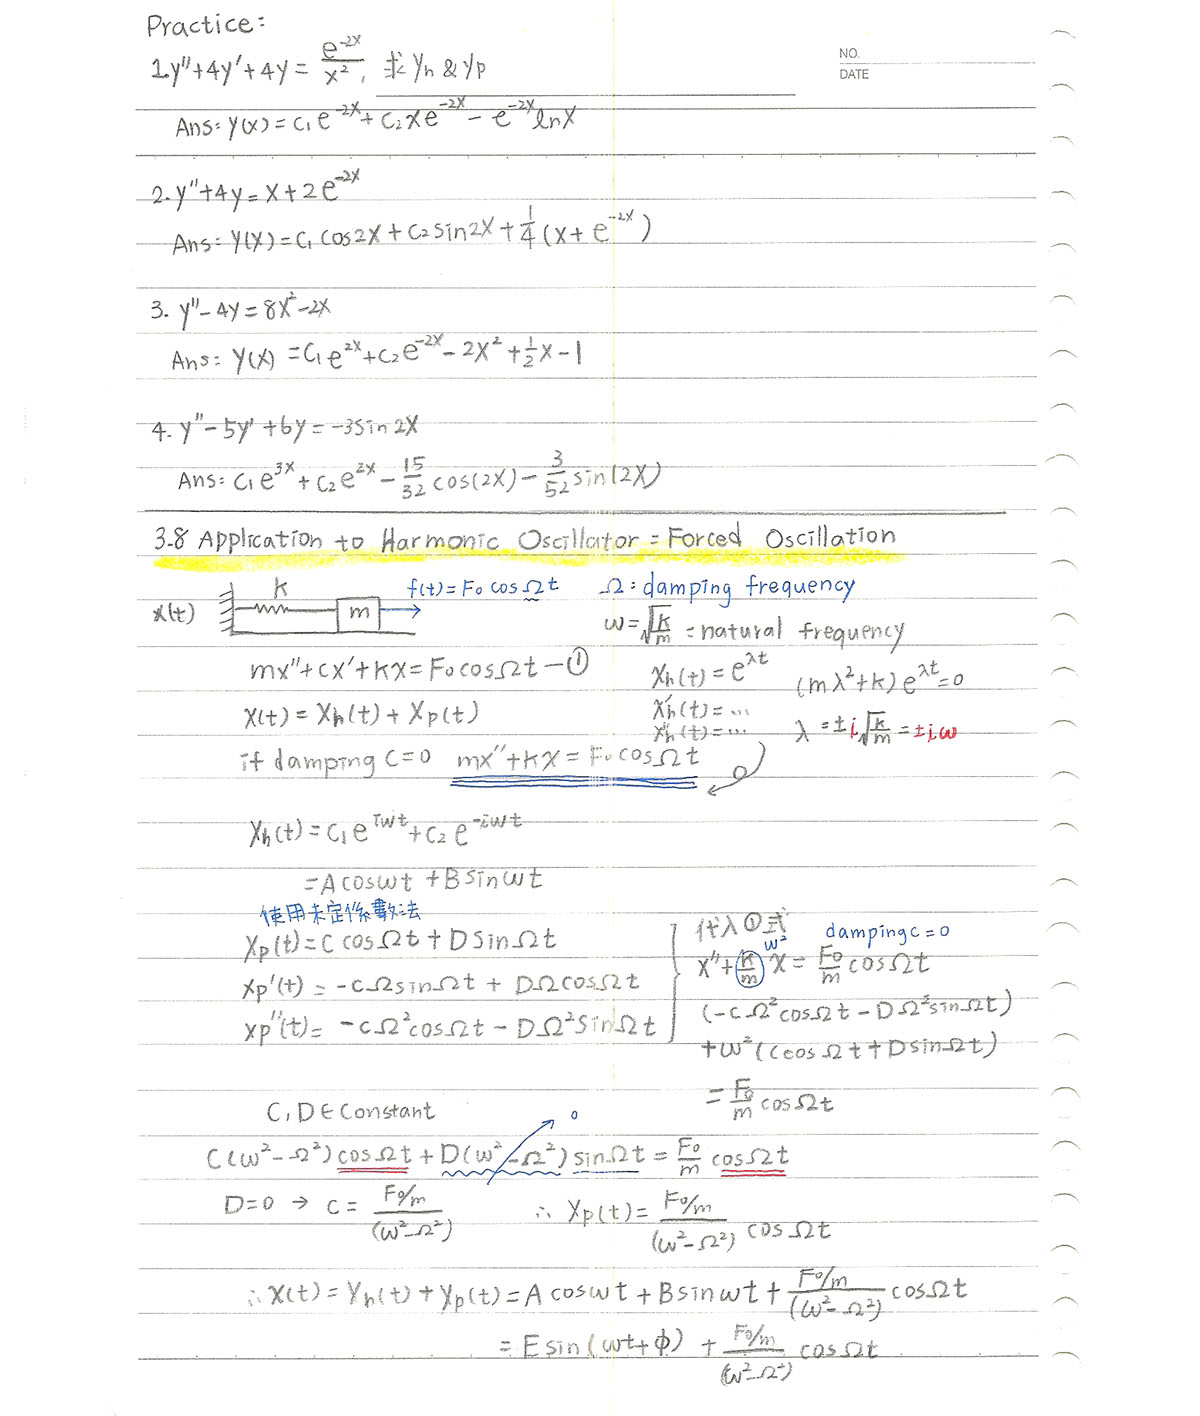 Practice:
NO.
DATE
1. y''+4y'+4y = e^{-2x}/x², 求 y_h & y_p
Ans: y(x) = c₁e^{-2x} + c₂xe^{-2x} - e^{-2x}lnx
2. y''+4y = x+2e^{-2x}
Ans: y(x) = c₁cos2x + c₂sin2x + 1/4 (x+e^{-2x})
3. y''-4y = 8x²-2x
Ans: y(x) = c₁e^{2x} + c₂e^{-2x} - 2x² + 1/2 x - 1
4. y''-5y'+6y = -3sin2x
Ans: c₁e^{3x} + c₂e^{2x} - 15/32 cos(2x) - 3/52 sin(2x)
3.8 Application to Harmonic Oscillator = Forced Oscillation
x(t) k m f(t) = F₀ cosΩt Ω: damping frequency
ω = √(k/m) = natural frequency
mx''+cx'+kx = F₀cosΩt —① x_h(t) = e^{λt} (mλ²+k)e^{λt} = 0
x(t) = x_h(t) + x_p(t) x_h'(t) = ...
x_h''(t) = ... λ = ±i√(k/m) = ±iω
if damping c=0 mx''+kx = F₀cosΩt
x_h(t) = c₁e^{iωt} + c₂e^{-iωt}
= Acosωt + Bsinωt
使用未定係數法
x_p(t) = C cosΩt + D sinΩt
x_p'(t) = -CΩsinΩt + DΩcosΩt
x_p''(t) = -CΩ²cosΩt - DΩ²sinΩt
代入①式 damping c=0
ω²
x'' + (k/m) x = F₀/m cosΩt
(-CΩ²cosΩt - DΩ²sinΩt)
+ω²(CcosΩt + DsinΩt)
= F₀/m cosΩt
C, D ∈ Constant
0
C(ω²-Ω²)cosΩt + D(ω²-Ω²)sinΩt = F₀/m cosΩt
D=0 → C = (F₀/m)/(ω²-Ω²) ∴ x_p(t) = (F₀/m)/(ω²-Ω²) cosΩt
∴ x(t) = y_h(t) + y_p(t) = Acosωt + Bsinωt + (F₀/m)/(ω²-Ω²) cosΩt
= Esin(ωt+φ) + (F₀/m)/(ω²-Ω²) cosΩt